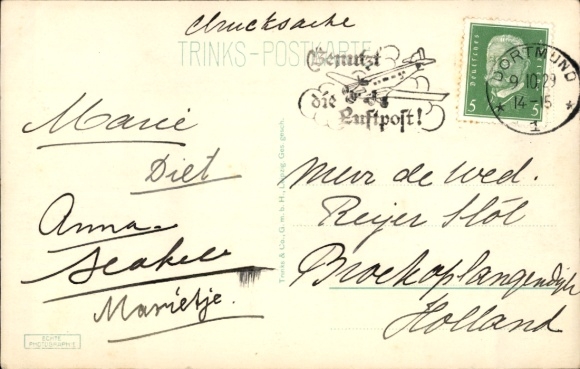 Drucksache
TRINKS-POSTKARTE
Benutzt
die
Luftpost!
DEUTSCHES REICH
5 5
DORTMUND
9.10.29
14-15
* 1 *
Marie
Diet
Anna
Marietje.
Trinks & Co., G. m. b. H., Leipzig. Ges. gesch.
Mevr de Wed.
Reijer Slot
Broekoplangendijk
Holland
ECHTE
PHOTOGRAPHIE